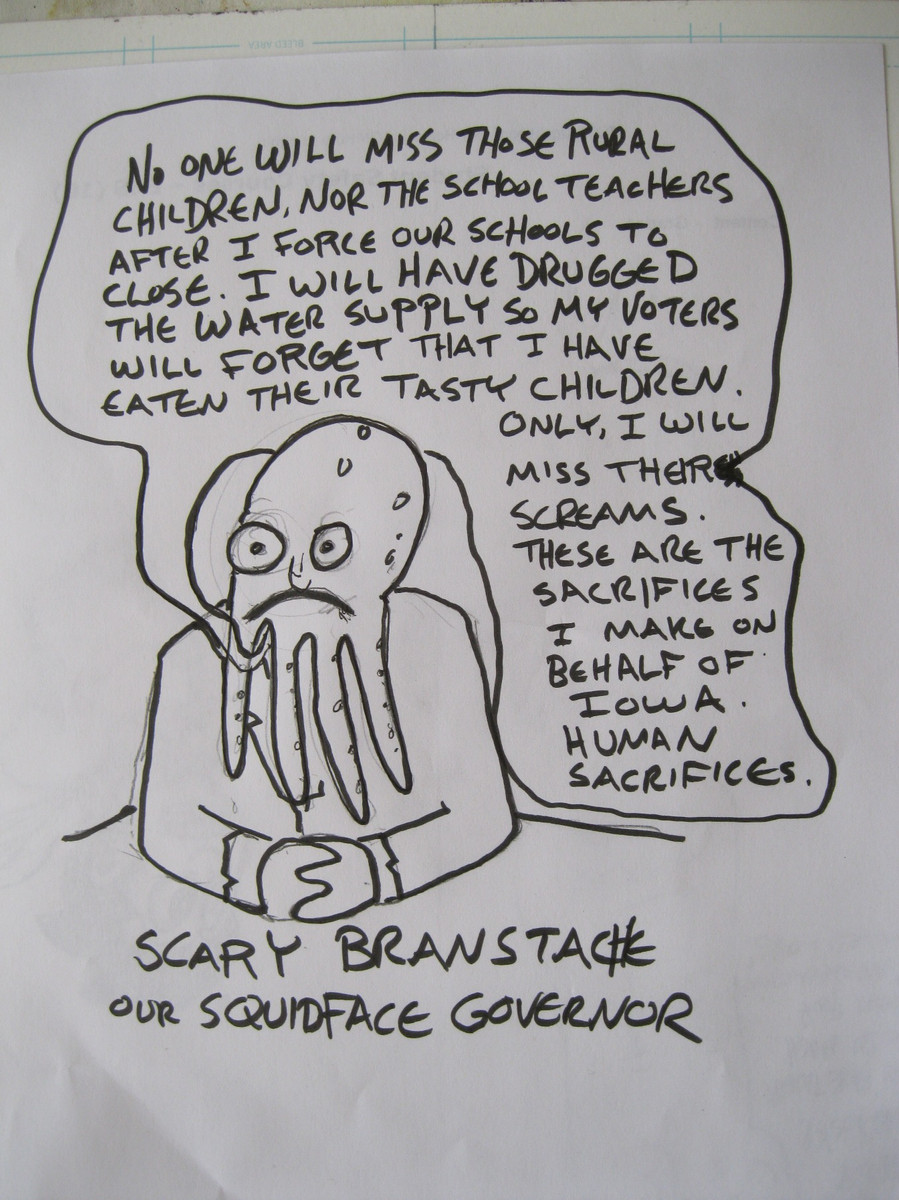 NO ONE WILL MISS THOSE RURAL
CHILDREN, NOR THE SCHOOL TEACHERS
AFTER I FORCE OUR SCHOOLS TO
CLOSE. I WILL HAVE DRUGGED
THE WATER SUPPLY SO MY VOTERS
WILL FORGET THAT I HAVE
EATEN THEIR TASTY CHILDREN.
ONLY, I WILL
MISS THEIR
SCREAMS.
THESE ARE THE
SACRIFICES
I MAKE ON
BEHALF OF
IOWA.
HUMAN
SACRIFICES.
SCARY BRANSTACHE
OUR SQUIDFACE GOVERNOR